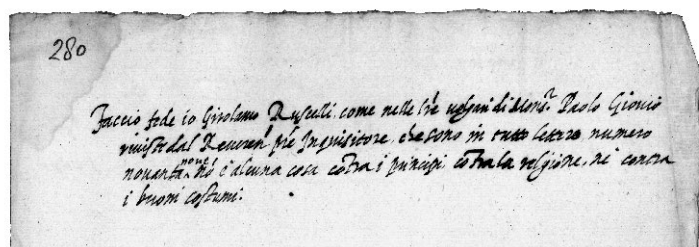 280
Faccio fede io Girolamo Ruscelli, come nelle lr̃e volgari di Mons.r Paolo Giovio
riviste dal Reveren. p̃re Inquisitore, che sono in tutto lettere numero
novanta nove nõ c'è alcuna cosa cõtra i principi cõtra la religione, nè contra
i buoni costumi.